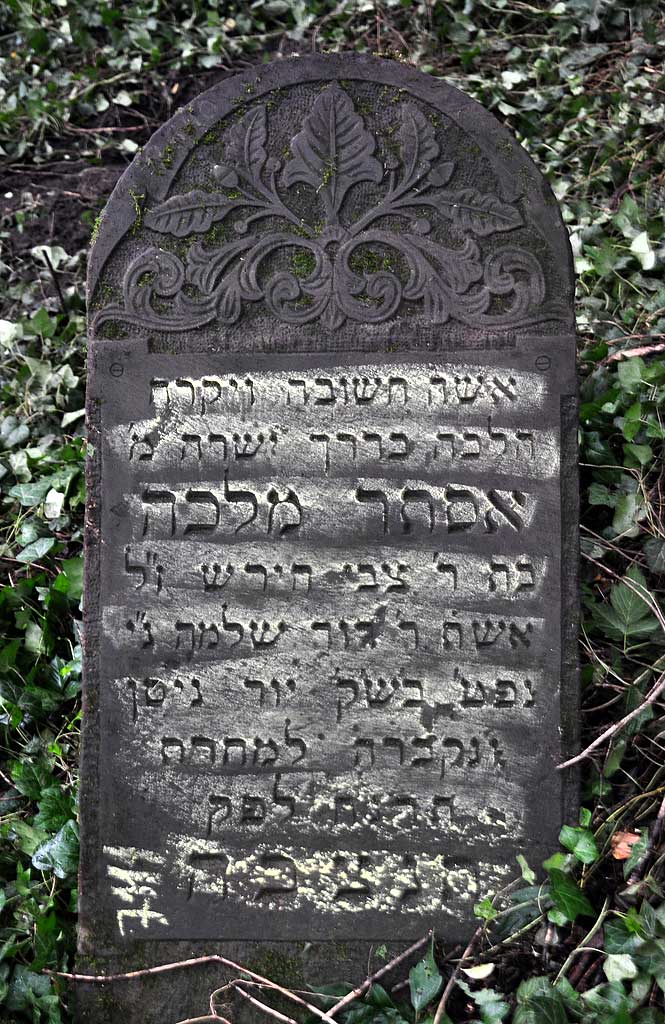 אשה חשובה ויקרה
הלכה בדרך ישרה מ׳
אסתר מלכה
בה ר׳ צבי הירש ז״ל
אשת ר׳ דוד שלמה נ״י
נפט׳ בש״ק יוד ניסן
ונקברה למחרת
לפק
תנצבה